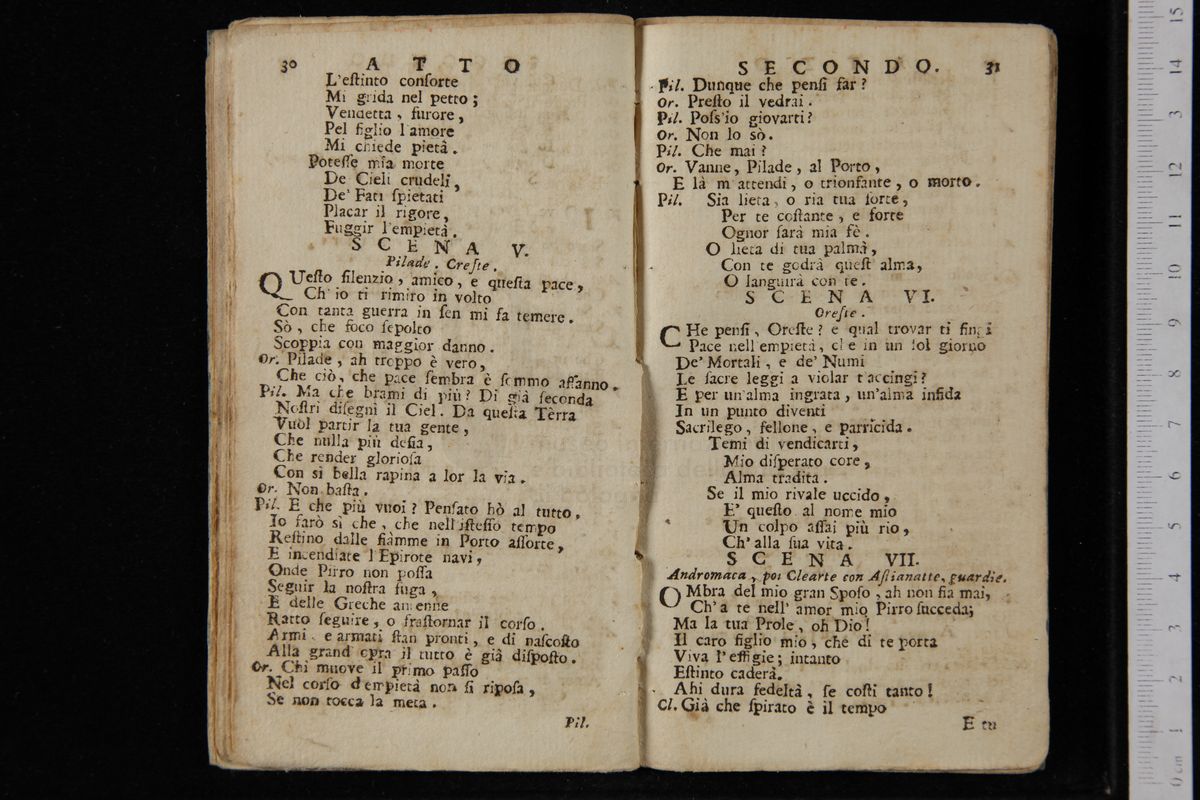 30 ATTO
L'eſtinto conſorte
Mi grida nel petto;
Vendetta, furore,
Pel figlio l'amore
Mi chiede pietà.
Poteſſe mia morte
De' Cieli crudeli,
De' Fati ſpietati
Placar il rigore,
Fuggir l'empietà.
SCENA V.
Pilade, Oreſte.
QUeſto ſilenzio, amico, e queſta pace,
Ch' io ti rimiro in volto
Con tanta guerra in ſen mi fa temere.
Sò, che foco ſepolto
Scoppia con maggior danno.
Or. Pilade, ah troppo è vero,
Che ciò, che pace ſembra è ſommo affanno.
Pil. Ma che brami di più? Di già ſeconda
Noſtri diſegni il Ciel. Da queſta Tèrra
Vuol partir la tua gente,
Che nulla più deſia,
Che render glorioſa
Con sì bella rapina a lor la via.
Or. Non baſta.
Pil. E che più vuoi? Penſato hò al tutto,
Io farò sì che, che nell'iſteſſo tempo
Reſtino dalle fiamme in Porto aſſorte,
E incendiate l'Epirote navi,
Onde Pirro non poſſa
Seguir la noſtra fuga,
E delle Greche antenne
Ratto ſeguire, o fraſtornar il corſo.
Armi e armati ſtan pronti, e di naſcoſto
Alla grand' opra il tutto è già diſpoſto.
Or. Chi muove il primo paſſo
Nel corſo d'empietà non ſi ripoſa,
Se non tocca la meta.
Pil.
SECONDO. 31
Pil. Dunque che penſi far?
Or. Preſto il vedrai.
Pil. Poſs'io giovarti?
Or. Non lo sò.
Pil. Che mai?
Or. Vanne, Pilade, al Porto,
E là m'attendi, o trionfante, o morto.
Pil. Sia lieta, o ria tua ſorte,
Per te coſtante, e forte
Ognor ſarà mia fè.
O lieta di tua palma,
Con te godrà queſt' alma,
O languirà con te.
SCENA VI.
Oreſte.
CHe penſi, Oreſte? e qual trovar ti fingi
Pace nell'empietà, che in un ſol giorno
De' Mortali, e de' Numi
Le ſacre leggi a violar t'accingi?
E per un'alma ingrata, un'alma infida
In un punto diventi
Sacrilego, fellone, e parricida.
Temi di vendicarti,
Mio diſperato core,
Alma tradita.
Se il mio rivale uccido,
E' queſto al nome mio
Un colpo aſſai più rio,
Ch' alla ſua vita.
SCENA VII.
Andromaca, poi Clearte con Aſtianatte, guardie.
OMbra del mio gran Spoſo, ah non fia mai,
Ch' a te nell' amor mio Pirro ſucceda;
Ma la tua Prole, oh Dio!
Il caro figlio mio, che di te porta
Viva l'effigie; intanto
Eſtinto caderà.
Ahi dura fedeltà, ſe coſti tanto!
Cl. Già che ſpirato è il tempo
E tu